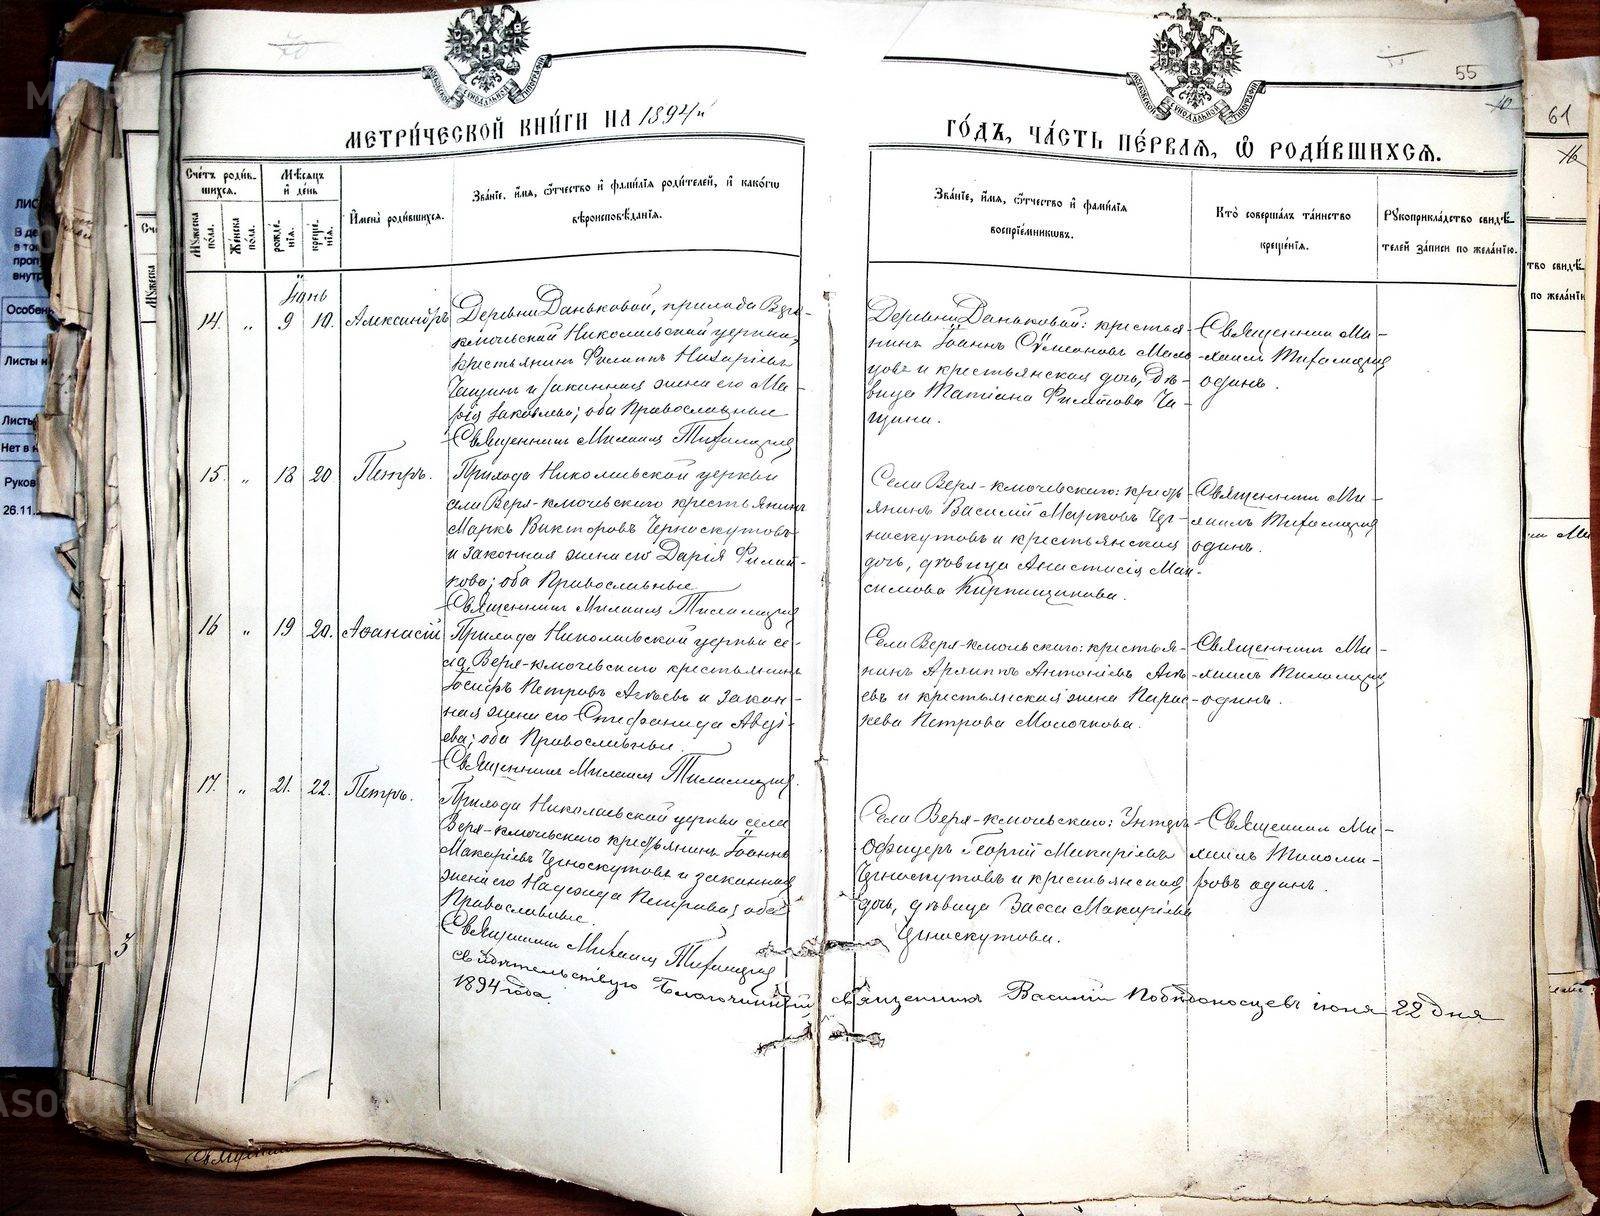 55
МЕТРИ́ЧЕСКОЙ КНИ́ГИ НА 1894й
ГО́ДЪ, ЧА́СТЬ ПЕ́РВАЯ, Ѡ РОДИ́ВШИХСЯ.
Сче́тъ роди́в-
шихся.
Мужеска по́ла.
Же́нска по́ла.
Мѣ́сяцъ
и де́нь
рожде́-
нія.
креще́-
нія.
И́мена роди́вшихся.
Зва́ніе, и́мя, ѻ́тчество и фами́лія роди́телей, и како́гѡ
вѣроисповѣ́данія.
Зва́ніе, и́мя, ѻ́тчество и фами́лія
воспріе́мниковъ.
Кто̀ соверша́лъ та́инство
креще́нія.
Рукоприкла́дство свидѣ́-
телей за́писи по жела́нію.
Іюнь
14. „ 9 10. Александръ
Деревни Даньковой, прихода Верх-
ключевской Николаевской церкви,
крестьянинъ Филиппъ
и законная жена его Ма-
рія Іаковлева; оба Православные
Священникъ Михаилъ Тихомировъ
Деревни Даньковой: крестья-
нинъ Іоаннъ Сѵмеоновъ
и крестьянская дочь, дѣ-
вица Татіана Филиппова
Священникъ Ми-
хаилъ Тихомировъ
одинъ.
15. „ 18 20 Петръ.
Прихода Николаевской церкви
села Верх-ключевского крестьянинъ
Маркъ Викторовъ Черноскутовъ
и законная жена его Дарія Филип-
пова; оба Православные
Священникъ Михаилъ Тихомировъ
Села Верх-ключевского: кресть-
янинъ Василій Марковъ Чер-
носкутовъ и крестьянская
дочь, дѣвица Анастасія Мак-
симова Кирпищикова.
Священникъ Ми-
хаилъ Тихомировъ
одинъ.
16 „ 19 20. Аѳанасій
Прихода Николаевской церкви се-
ла Верх-ключевского крестьянинъ
Іосифъ Петровъ Агѣевъ и закон-
ная жена его Стефанида Авдѣ-
ева; оба Православные.
Священникъ Михаилъ Тихомировъ.
Села Верх-ключевского: крестья-
нинъ Архиппъ Антоніевъ Агѣ-
евъ и крестьянская жена Парас-
кева Петрова Молочкова.
Священникъ Ми-
хаилъ Тихомировъ
одинъ.
17. „ 21. 22. Петръ.
Прихода Николаевской церкви села
Верх-ключевского крестьянинъ Іоаннъ
Макаріевъ Черноскутовъ и законная
жена его Надежда Петрова; оба
Православные.
Священникъ Михаилъ Тихомировъ
Села Верх-ключевского: Унтеръ-
Офицеръ Георгій Макаріевъ
Черноскутовъ и крестьянская
дочь, дѣвица Васса Макаріева
Черноскутова.
Священникъ Ми-
хаилъ Тихоми-
ровъ одинъ.
свидѣтельствую Благочинный священникъ Василій Побѣдоносцевъ іюня 22 дня
1894 года.
61
3